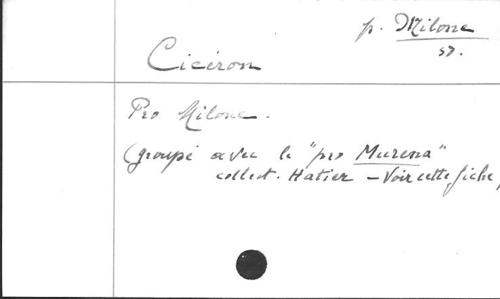 p. Milone
57.
Cicéron
Pro Milone.
(groupé avec le "pro Murena"
collect. Hatier - Voir cette fiche,